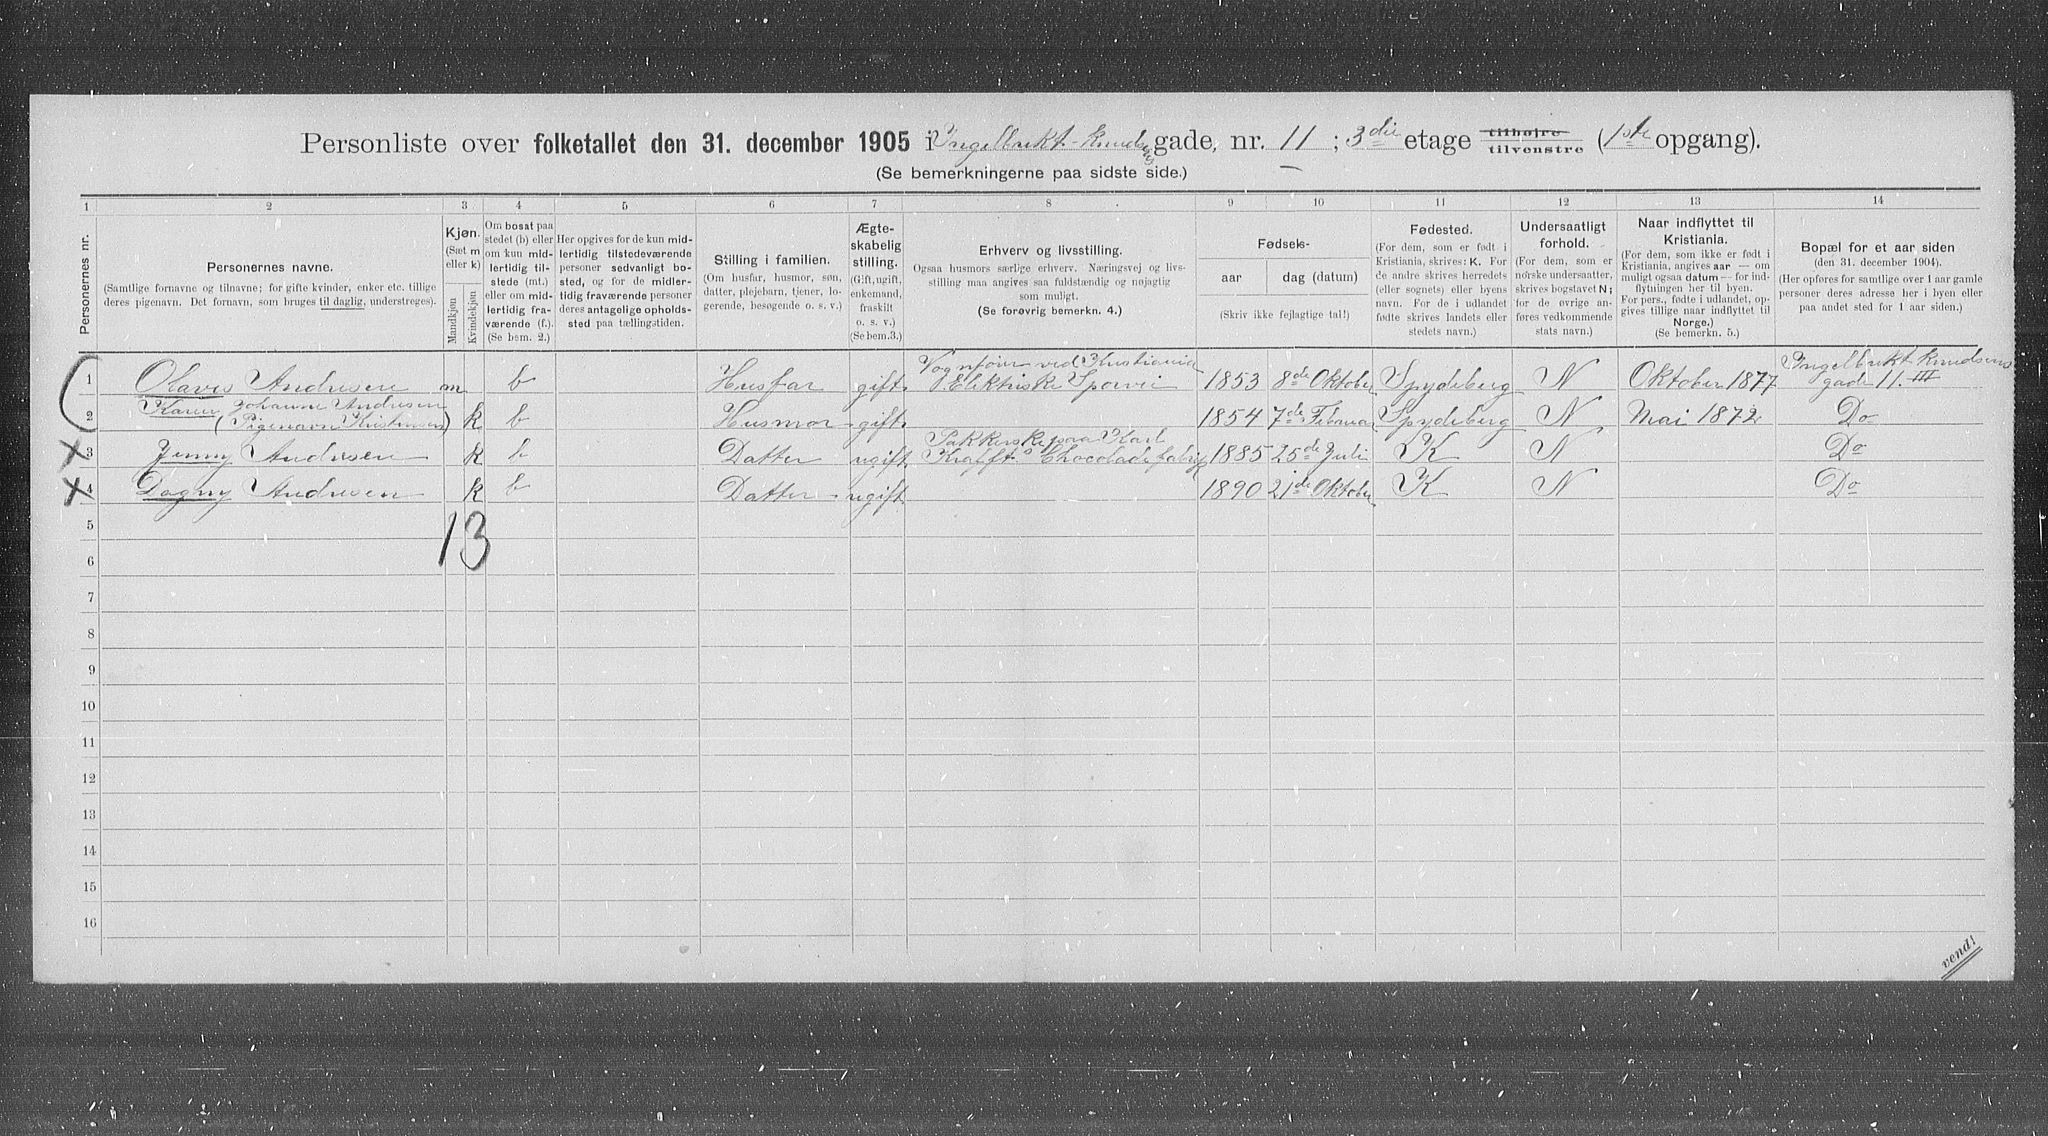 Personliste over folketallet den 31. december 1905 i Ingelbrekt-Knudsens gade, nr. 11; 3die etage tilhøjre tilvenstre (1ste opgang).
(Se bemerkningerne paa sidste side.)
1 2 3 4 5 6 7 8 9 10 11 12 13 14
Personernes nr.
Personernes navne.
(Samtlige fornavne og tilnavne; for gifte kvinder, enker etc. tillige
deres pigenavn. Det fornavn, som bruges til daglig, understreges).
Kjøn.
(Sæt m
eller k)
Mandkjøn
Kvindekjøn
Om bosat paa
stedet (b) eller
om kun mid-
lertidig til-
stede (mt.)
eller om mid-
lertidig fra-
værende (f.).
(Se bem. 2.)
Her opgives for de kun mid-
lertidig tilstedeværende
personer sedvanligt bo-
sted, og for de midler-
tidig fraværende personer
deres antagelige opholds-
sted paa tællingstiden.
Stilling i familien.
(Om husfar, husmor, søn,
datter, plejebarn, tjener, lo-
gerende, besøgende o. s. v.)
Ægte-
skabelig
stilling.
(Gift, ugift,
enkemand,
fraskilt
o. s. v.)
(Se bem. 3.)
Erhverv og livsstilling.
Ogsaa husmors særlige erhverv. Næringsvej og livs-
stilling maa angives saa fuldstændig og nøjagtig
som muligt.
(Se forøvrig bemerkn. 4.)
Fødsels-
aar dag (datum)
(Skriv ikke fejlagtige tal!)
Fødested.
(For dem, som er født i
Kristiania, skrives: K. For
de andre skrives herredets
(eller sognets) eller byens
navn. For de i udlandet
fødte skrives landets eller
stedets navn.)
Undersaatligt
forhold.
(For dem, som er
norske undersaatter,
skrives bogstavet N;
for de øvrige an-
føres vedkommende
stats navn.)
Naar indflyttet til
Kristiania.
(For dem, som ikke er født i
Kristiania, angives aar — om
muligt ogsaa datum — for ind-
flytningen her til byen.
For pers., fødte i udlandet, op-
gives tillige naar indflyttet til
Norge.)
(Se bemerkn. 5.)
Bopæl for et aar siden
(den 31. december 1904).
(Her opføres for samtlige over 1 aar gamle
personer deres adresse her i byen eller
paa andet sted for 1 aar siden.)
1 Olavis Andresen m b Husfar gift Vognfører ved Kristiania Elektriske Sporvei 1853 8de Oktober Spydeberg N Oktober 1877 Ingelbrekt Knudsens gade 11. III
2 Karen Johanne Andresen (Pigenavn Kristensen) k b Husmor gift 1854 7de Februar Spydeberg N Mai 1872 Do
3 Jenny Andresen k b Datter ugift Pakkerske paa Karl Krafft's Chocoladefabrik 1885 25de Juli K N Do
4 Dagny Andresen k b Datter ugift 1890 21de Oktober K N Do
13
5
6
7
8
9
10
11
12
13
14
15
16
vend!